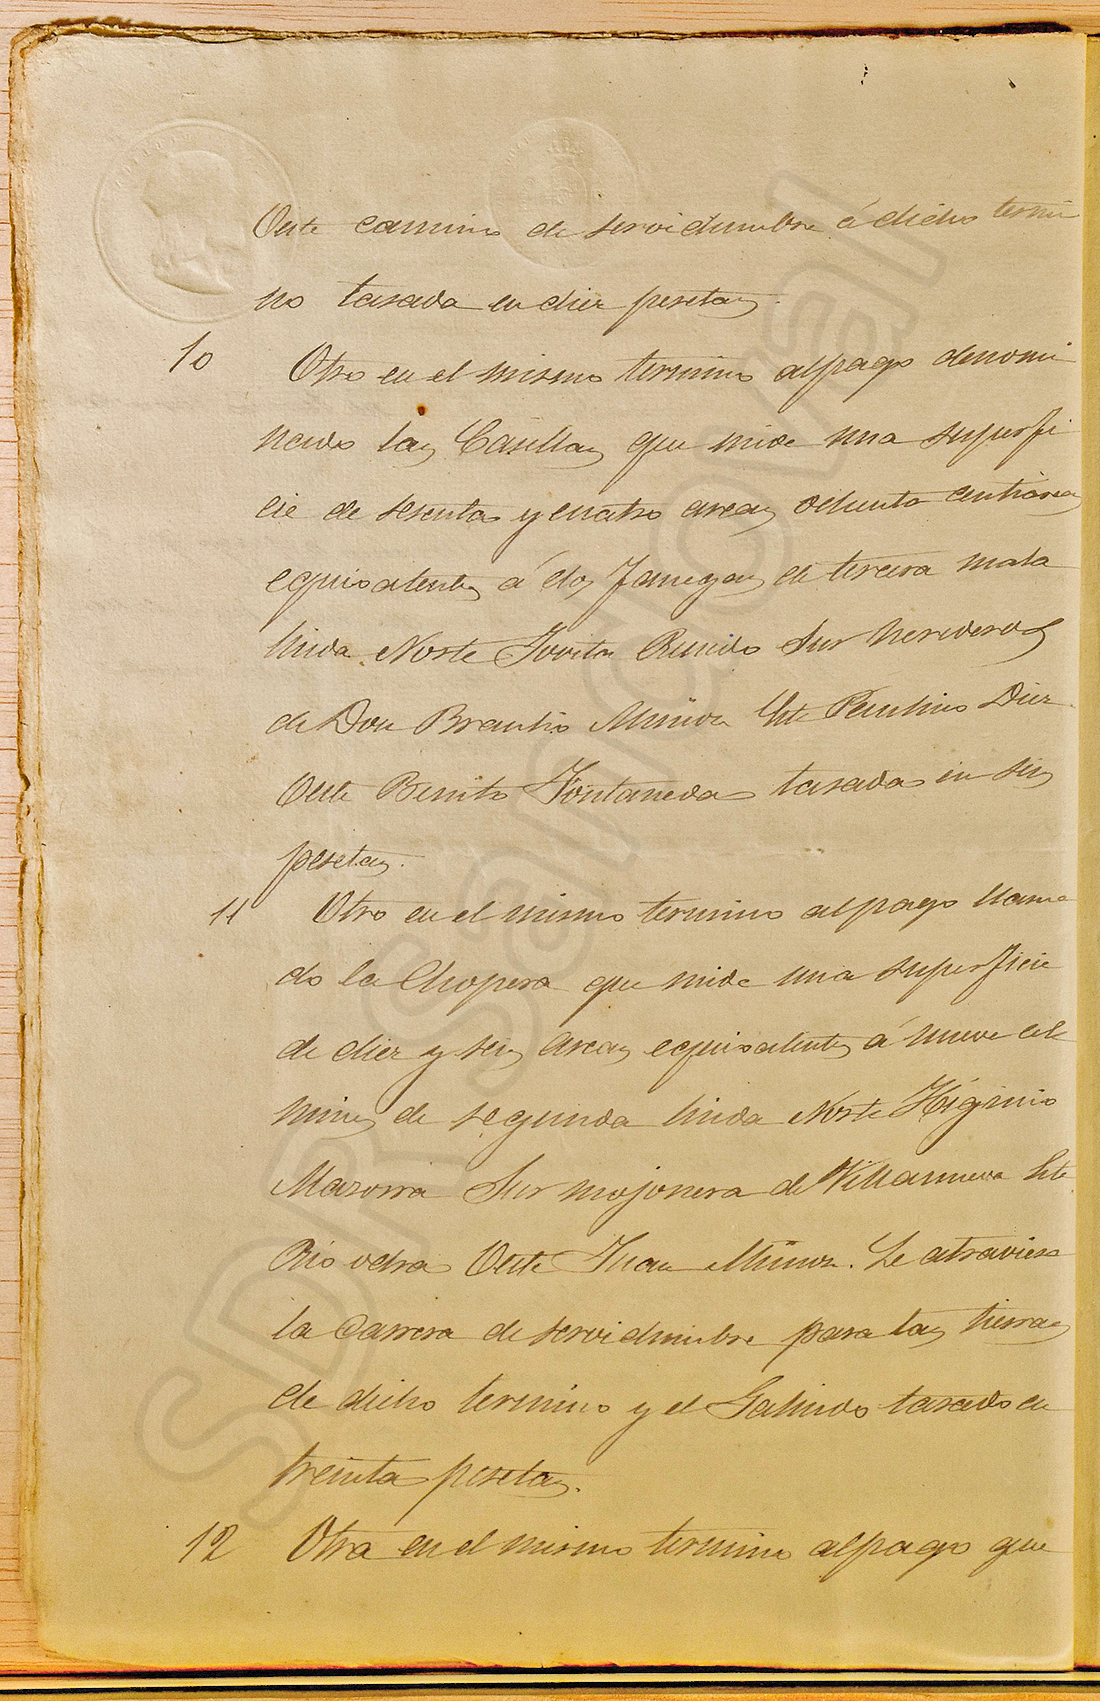 Oeste camino de servidumbre á dicho termi
no tasada en diez pesetas.
10 Otro en el mismo termino al pago denomi
nado las Casillas que mide una superfi
cie de sesenta y cuatro areas ochenta centiareas
equivalentes á dos fanegas de tercera mala
linda Norte Jovita Pulido Sur herederos
de Don Braulio Muñoz Este Paulino Diez
Oeste Benito Fontaneda tasada en seis
pesetas.
11 Otro en el mismo termino al pago llama
do la Chopera que mide una superficie
de diez y seis areas equivalentes á nueve cele
mines de segunda linda Norte Higinio
Mazorra Sur mojonera de Villanueva Este
Rio odra Oeste Juan Muñoz. Le atraviesa
la Carrera de servidumbre para las tierras
de dicho termino y el Galindo tasado en
treinta pesetas.
12 Otra en el mismo termino al pago que
SDR Sandoval